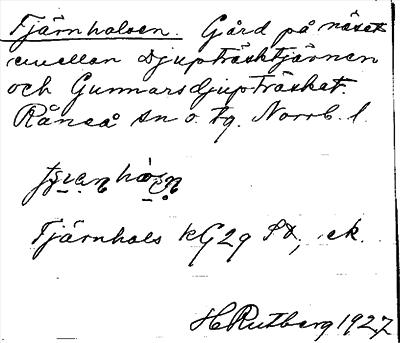 Tjärnhalsen. Gård på näset
emellan Djupträsktjärnen
och Gunnarsdjupträsket.
Råneå sn o. tg. Norrb. l.
Tjärnhals kG2g St, ek.
H Rutberg 1927